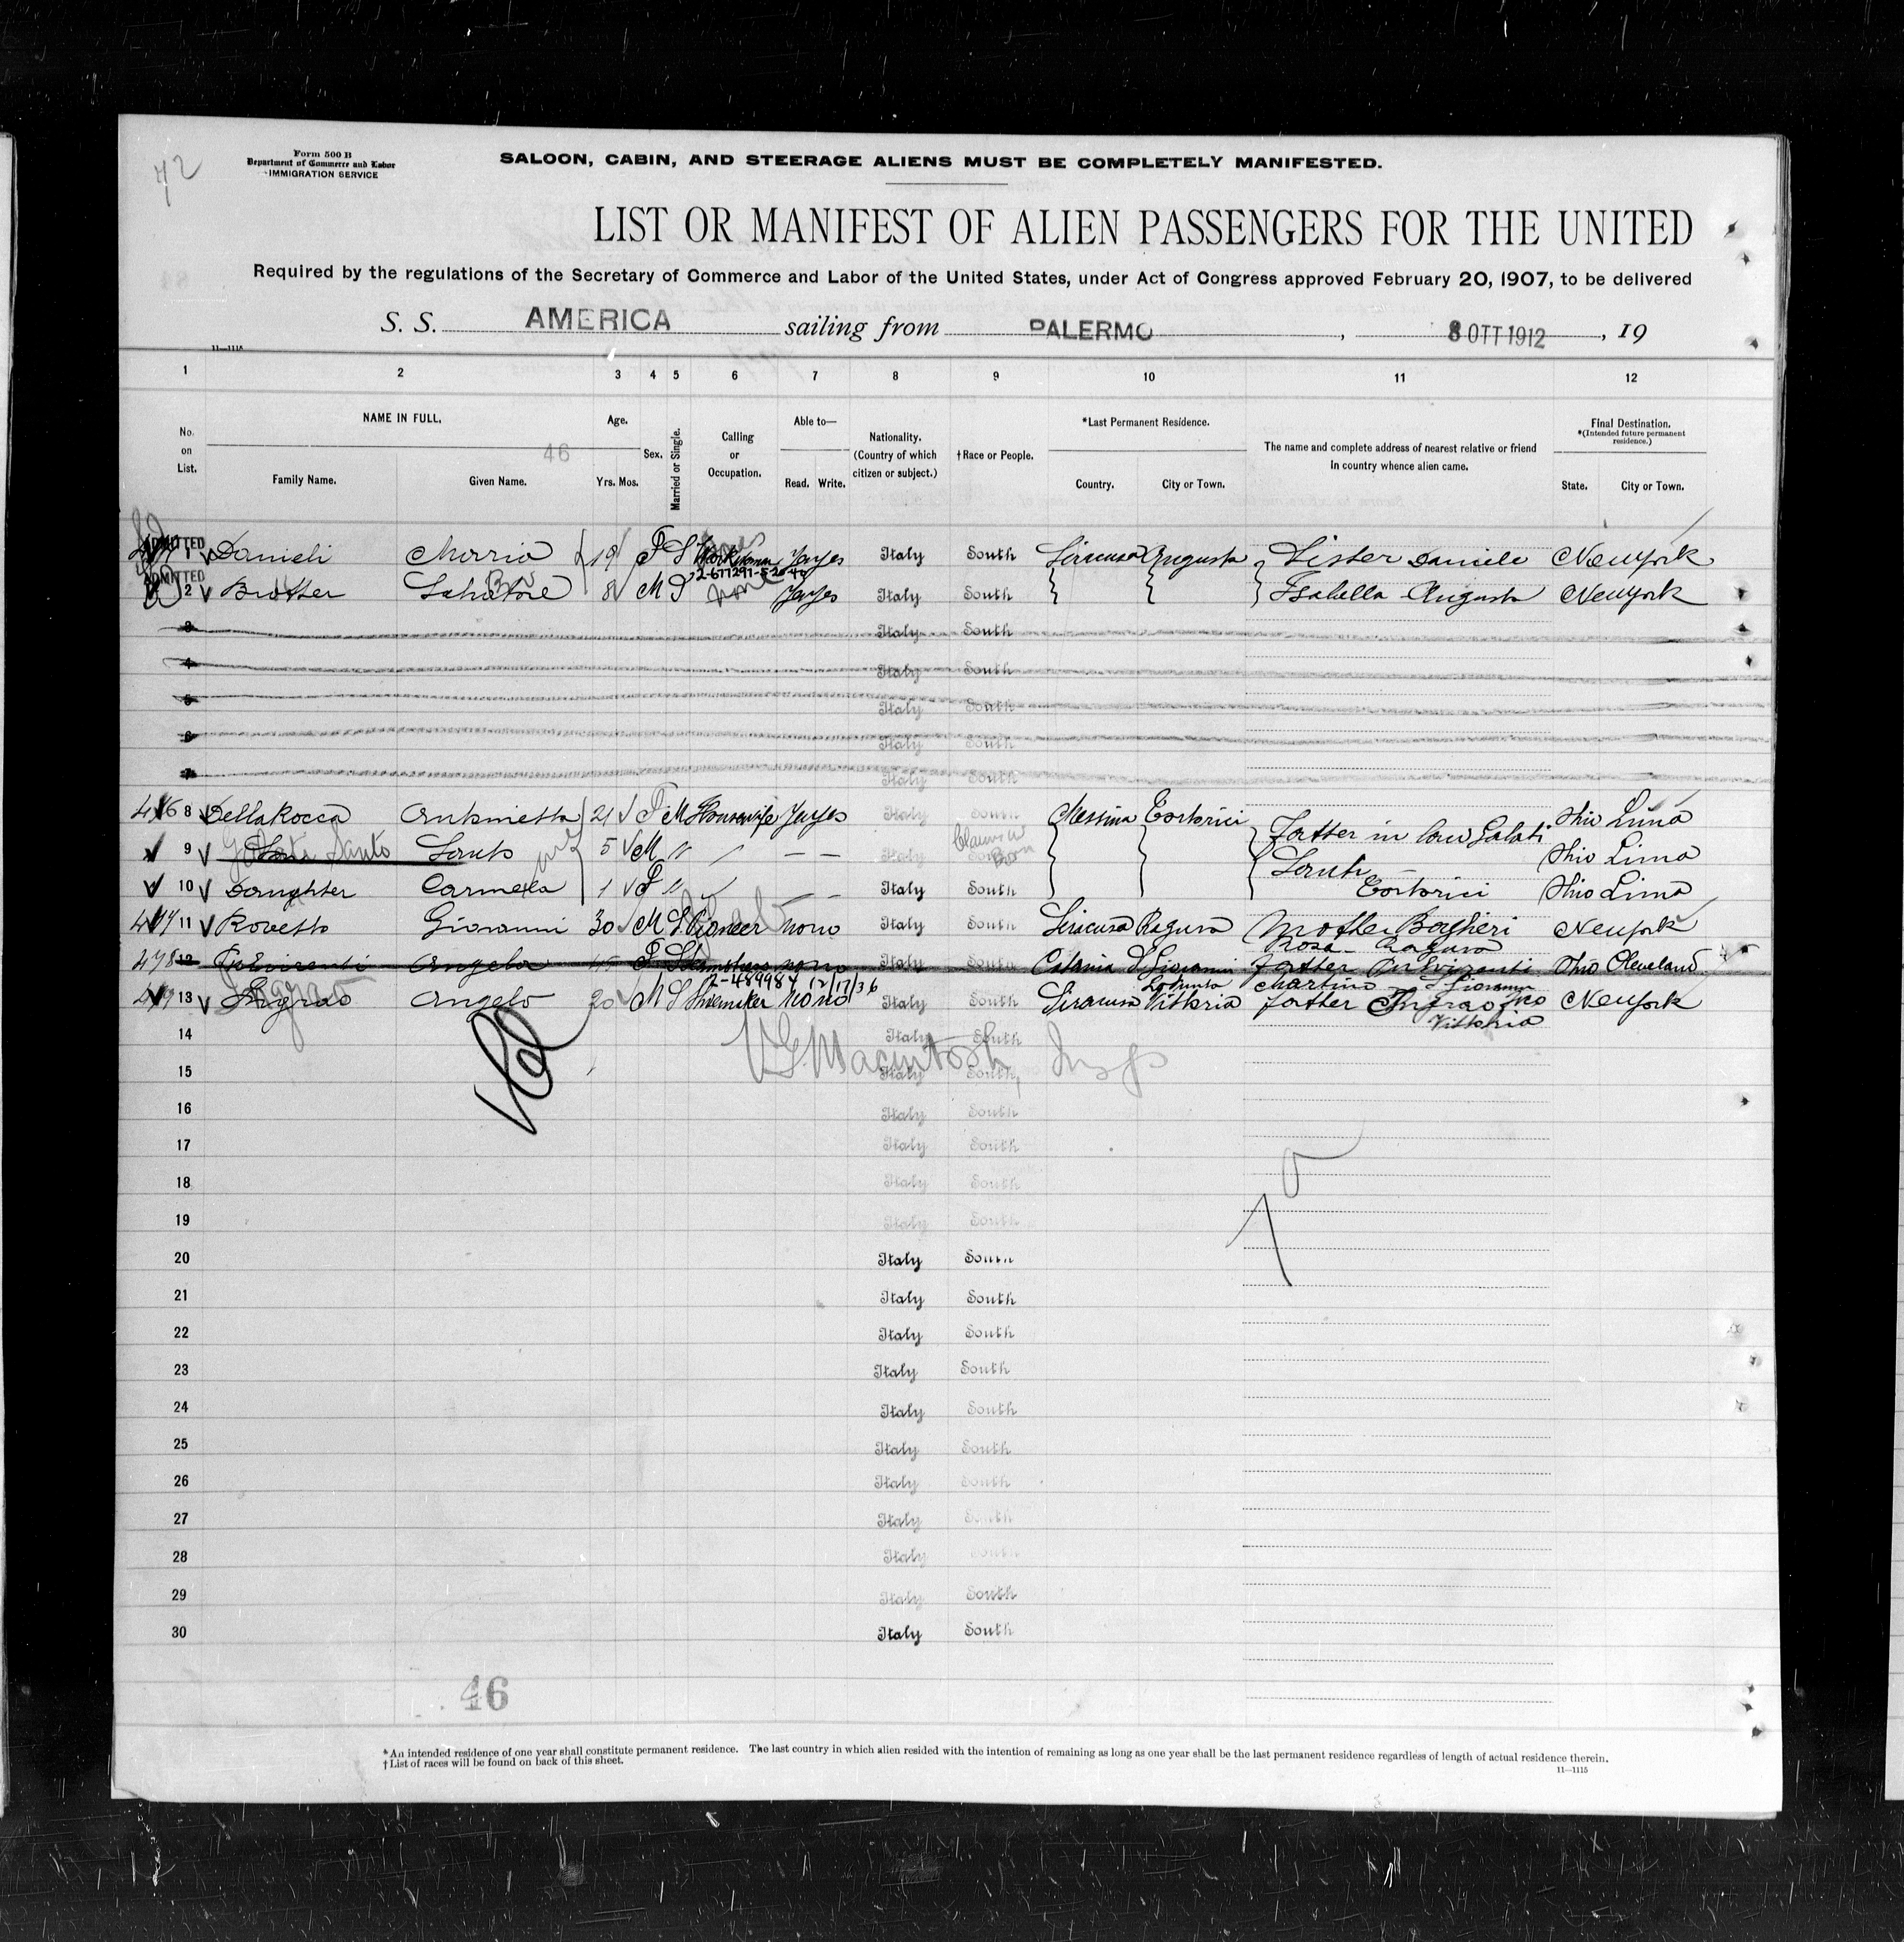 72
Form 500 B
Department of Commerce and Labor
IMMIGRATION SERVICE
SALOON, CABIN, AND STEERAGE ALIENS MUST BE COMPLETELY MANIFESTED.
LIST OR MANIFEST OF ALIEN PASSENGERS FOR THE UNITED
Required by the regulations of the Secretary of Commerce and Labor of the United States, under Act of Congress approved February 20, 1907, to be delivered
S. S. AMERICA sailing from PALERMO, 8 OTT 1912, 19
11—1115
1 2 3 4 5 6 7 8 9 10 11 12
No. on List. NAME IN FULL. Family Name. Given Name. Age. Yrs. Mos. Sex. Married or Single. Calling or Occupation. Able to— Read. Write. Nationality. (Country of which citizen or subject.) †Race or People. *Last Permanent Residence. Country. City or Town. The name and complete address of nearest relative or friend in country whence alien came. Final Destination. *(Intended future permanent residence.) State. City or Town.
46
ADMITTED 1 Danieli 19 F S yes Italy South Siracusa Augusta Sister Daniele New York
2-677291-5-20-42
ADMITTED 2 Brother Salvatore 8 M S none yes Italy South Isabella Augusta New York
3 Italy South
4 Italy South
5 Italy South
6 Italy South
7 Italy South
476 8 Dellarocca Antonietta 21 F M Housewife yes Italy South Messina Tortorici Father in law Galati Ohio Lima
9 Son Santo 5 M Italy South Santo Ohio Lima
10 Daughter Carmela 1 F Italy South Tortorici Ohio Lima
477 11 Rovetto Giovanni 30 M S no no Italy South Siracusa Ragusa Mother New York
Rosa Ragusa
478 12 Angela F S no no Catania S Giovanni Father Ohio Cleveland
2-489984 12/17/36 La Punta Martino S Giovanni
479 13 Ingrao Angelo 20 M S Shoemaker no no Italy South Siracusa Vittoria father Ingrao New York
Vittoria
14 Italy South
15 Italy South
16 Italy South
17 Italy South
18 Italy South
19 Italy South
20 Italy South
21 Italy South
22 Italy South
23 Italy South
24 Italy South
25 Italy South
26 Italy South
27 Italy South
28 Italy South
29 Italy South
30 Italy South
46
*An intended residence of one year shall constitute permanent residence. The last country in which alien resided with the intention of remaining as long as one year shall be the last permanent residence regardless of length of actual residence therein.
†List of races will be found on back of this sheet.
11—1115